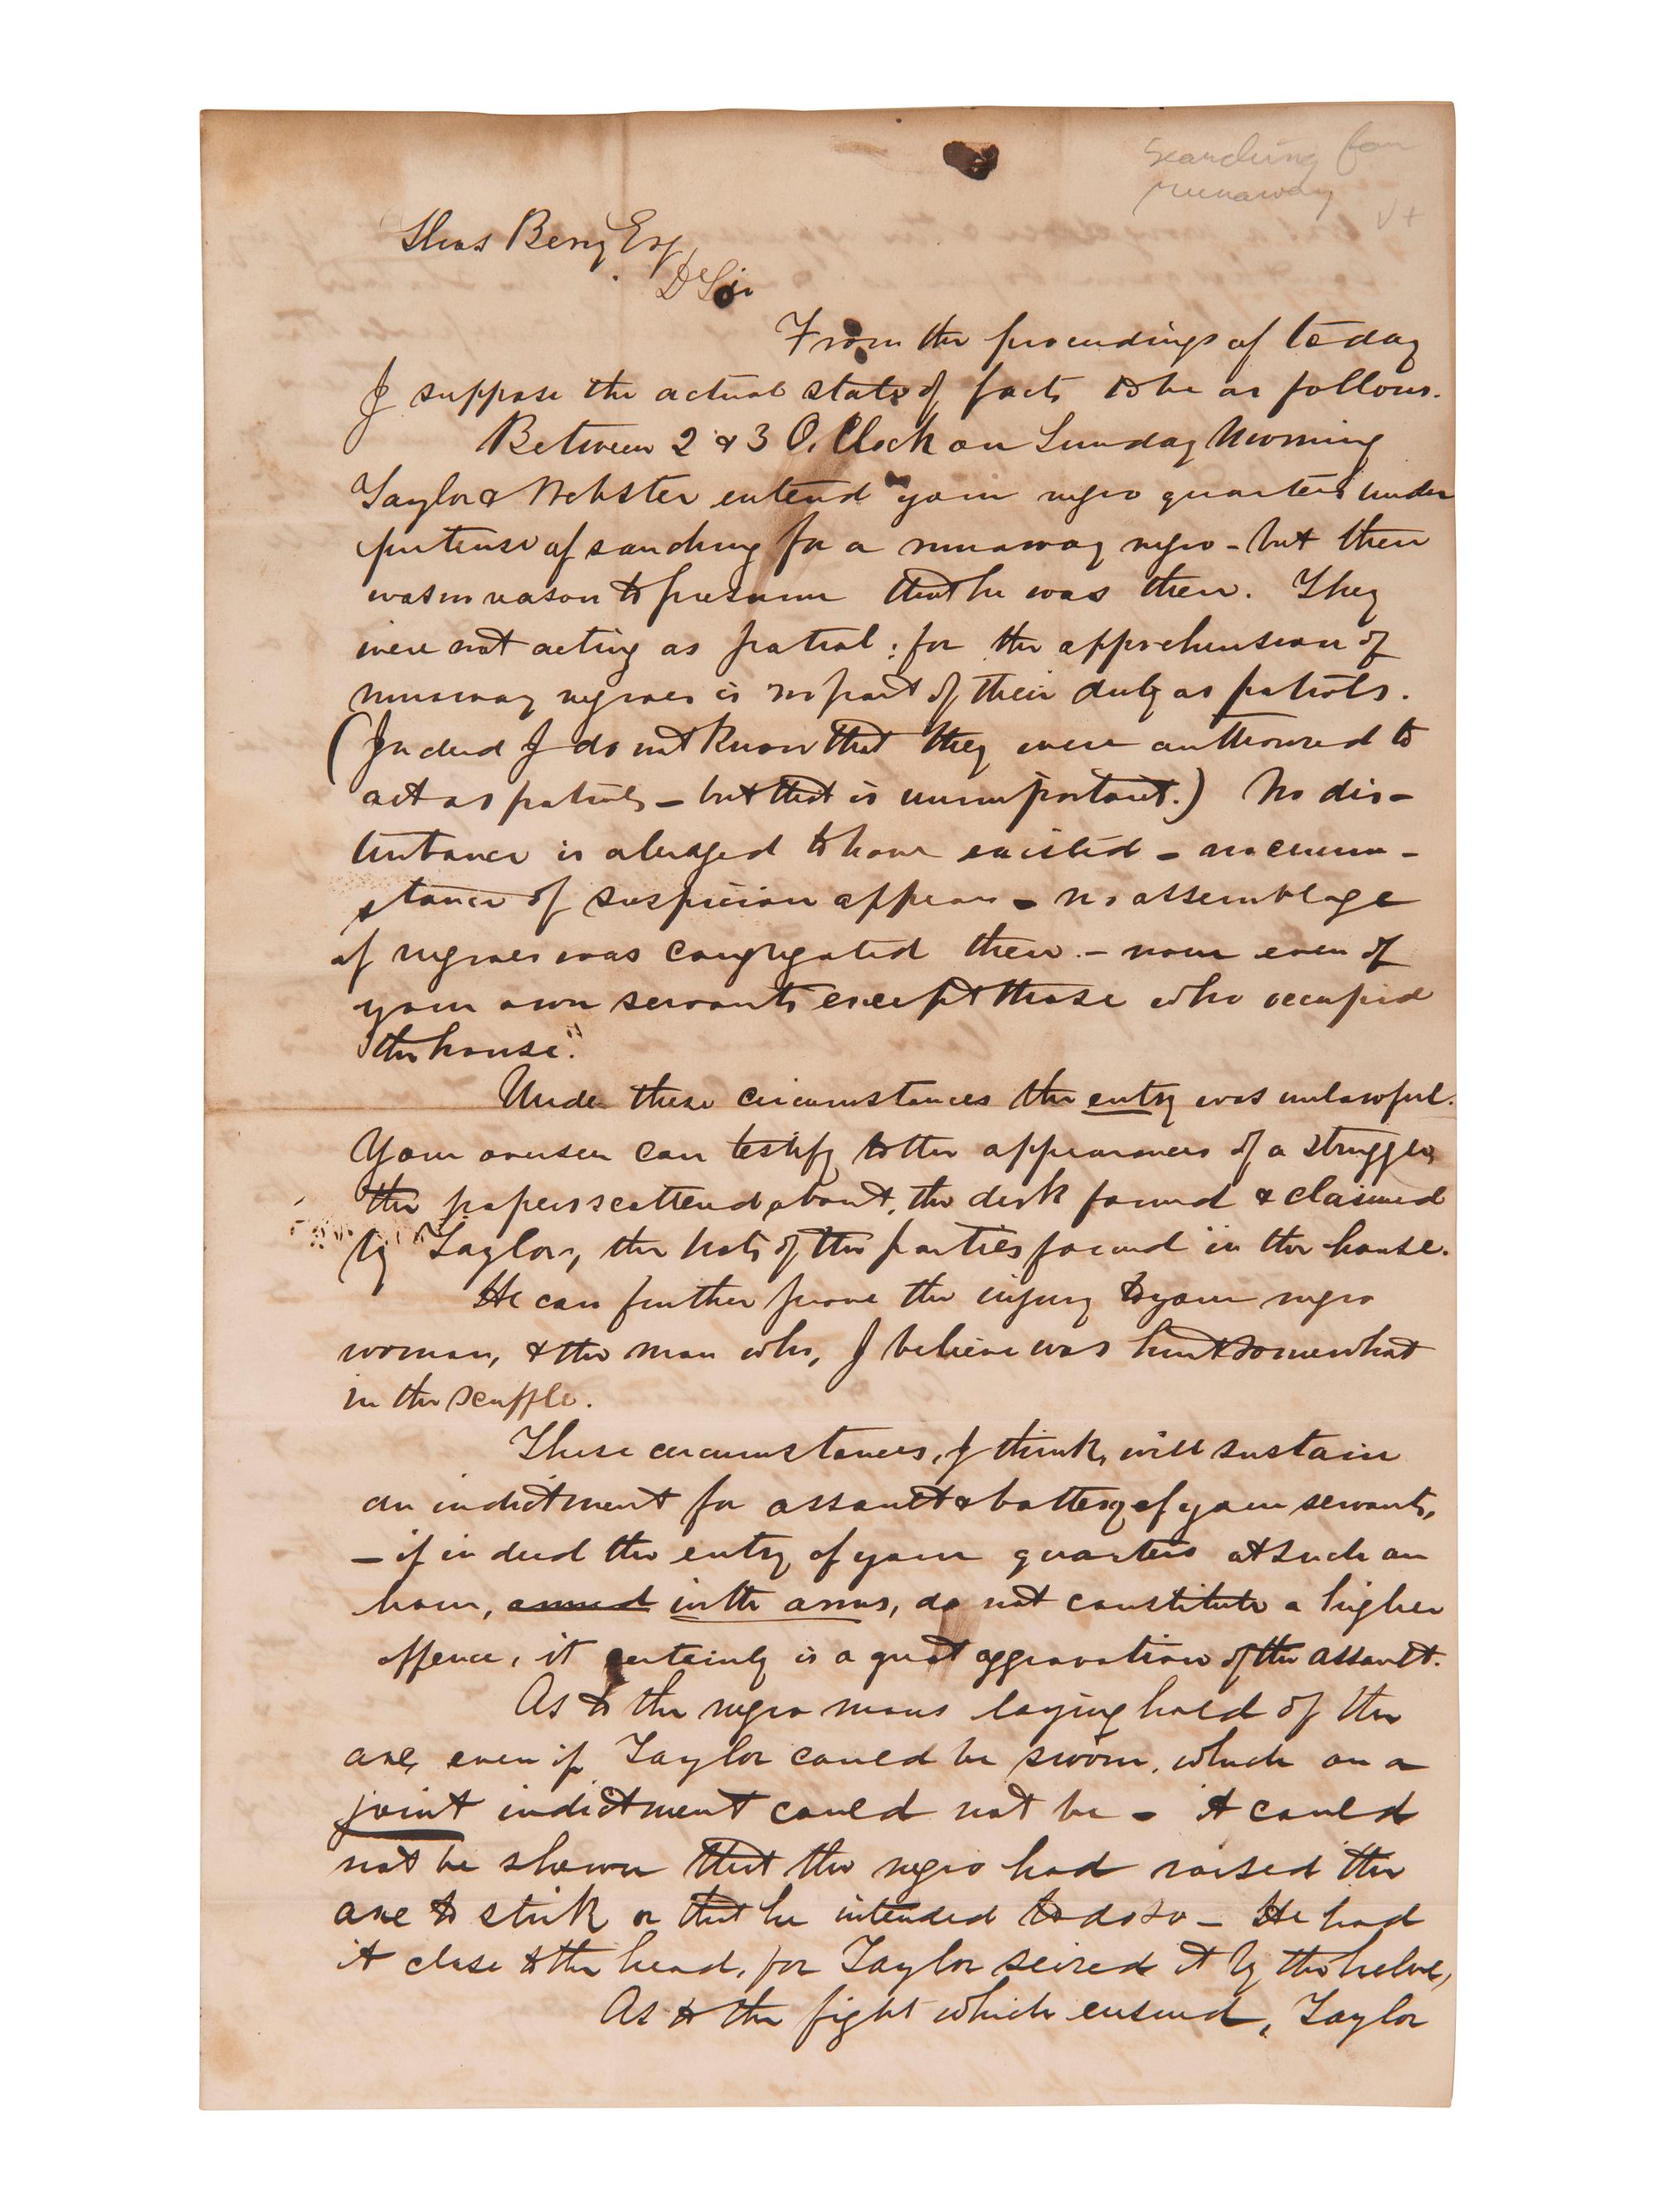 Searching for
runaway
V+
Thos Berry Esq
Dr Sir
From the proceedings of to day
I suppose the actual state of facts to be as follows.
Between 2 & 3 O, Clock on Sunday Morning
Taylor & Webster entered your negro quarters under
pretense of searching for a runaway negro - but there
was no reason to presume that he was there. They
were not acting as patrol: for the apprehension of
runaway negroes is no part of their duty as patrols.
(Indeed I do not know that they were authorised to
act as patrols - but that is unimportant.) No dis-
turbance is alledged to have existed - no circum-
stance of suspicion appears - no assemblage
of negroes was congregated there. - none even of
your own servants except those who occupied
the house."
Under these circumstances the entry was unlawful.
Your overseer can testify to the appearances of a struggle,
the papers scattered about, the dirk found & claimed
by Taylor, the hats of the parties found in the house.
He can further prove the injury to your negro
woman, & the man who, I believe was hurt somewhat
in the scuffle.
These circumstances, I think, will sustain
an indictment for assault & battery of your servants,
- if indeed the entry of your quarters at such an
hour, armed with arms, do not constitute a higher
offence, it certainly is a great aggravation of the assault.
As to the negro mans laying hold of the
axe, even if Taylor could be sworn, which on a
joint indictment could not be - it could
not be shown that the negro had raised the
axe to strik or that he intended to do so - He had
it close to the head, for Taylor seized it by the helve,
As to the fight which ensued, Taylor